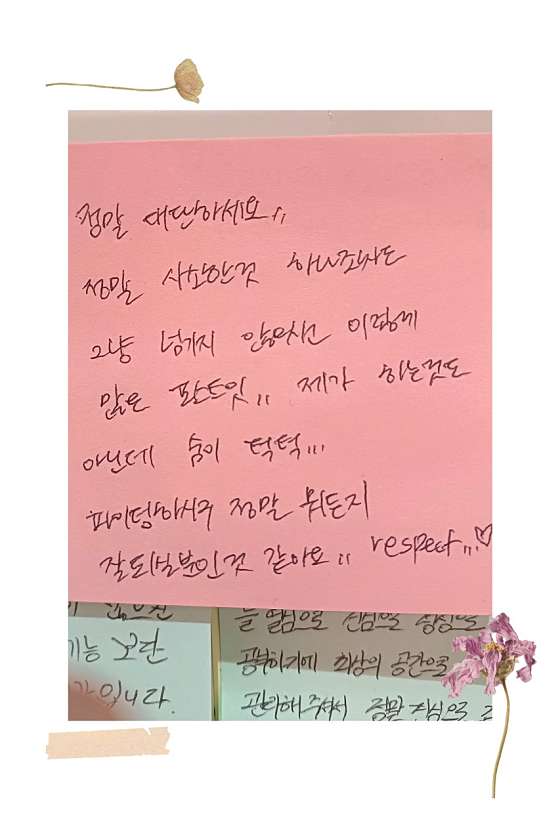 정말 대단하세요,,
정말 사소한것 하나조차도
그냥 넘기지 않으시고 이렇게
많은 포스트잇,, 제가 하는것도
아닌데 숨이 턱턱,,,
파이팅하시구 정말 뭐든지
잘되실분인것 같아요,, respect,,,♡
기능 보단
입니다.
공부하기에 최상의 공간으로
관리해주셔서 정말 진심으로